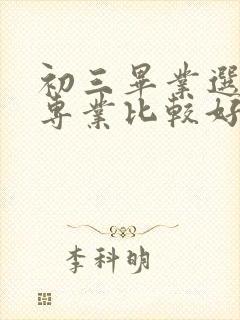 初三畢業選
專業比較好
李科明